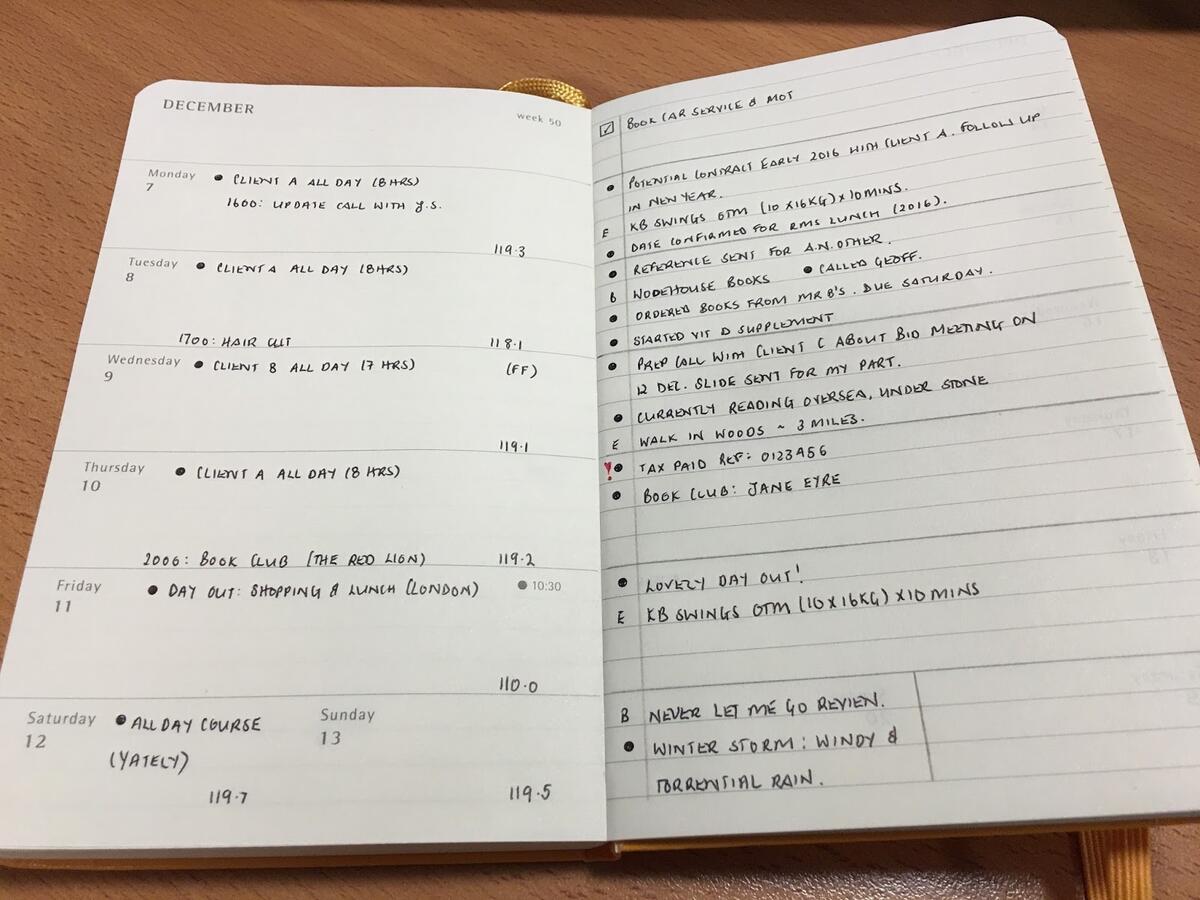 DECEMBER
week 50
Monday
7
● CLIENT A ALL DAY (8HRS)
1600: UPDATE CALL WITH J.S.
119.3
Tuesday
8
● CLIENT A ALL DAY (8HRS)
1700: HAIR CUT
118.1
Wednesday
9
● CLIENT B ALL DAY (7 HRS)
(FF)
119.1
Thursday
10
● CLIENT A ALL DAY (8 HRS)
2000: BOOK CLUB (THE RED LION)
119.2
Friday
11
● DAY OUT: SHOPPING & LUNCH (LONDON)
● 10:30
110.0
Saturday
12
● ALL DAY COURSE
(YATELY)
119.7
Sunday
13
119.5
☑ BOOK CAR SERVICE & MOT
● POTENTIAL CONTRACT EARLY 2016 WITH CLIENT A. FOLLOW UP
IN NEW YEAR.
E KB SWINGS OTM (10 X16KG) X 10MINS.
● DATE CONFIRMED FOR RMS LUNCH (2016).
● REFERENCE SENT FOR A.N. OTHER.
B WODEHOUSE BOOKS ● CALLED GEOFF.
● ORDERED BOOKS FROM MR B'S. DUE SATURDAY.
● STARTED VIT D SUPPLEMENT
● PREP CALL WITH CLIENT C ABOUT BID MEETING ON
12 DEC. SLIDE SENT FOR MY PART.
● CURRENTLY READING OVERSEA, UNDER STONE
E WALK IN WOODS ~ 3 MILES.
! ● TAX PAID REF: 0123456
● BOOK CLUB: JANE EYRE
● LOVELY DAY OUT!
E KB SWINGS OTM (10 X 16KG) X10 MINS
B NEVER LET ME GO REVIEW.
● WINTER STORM: WINDY &
TORRENTIAL RAIN.